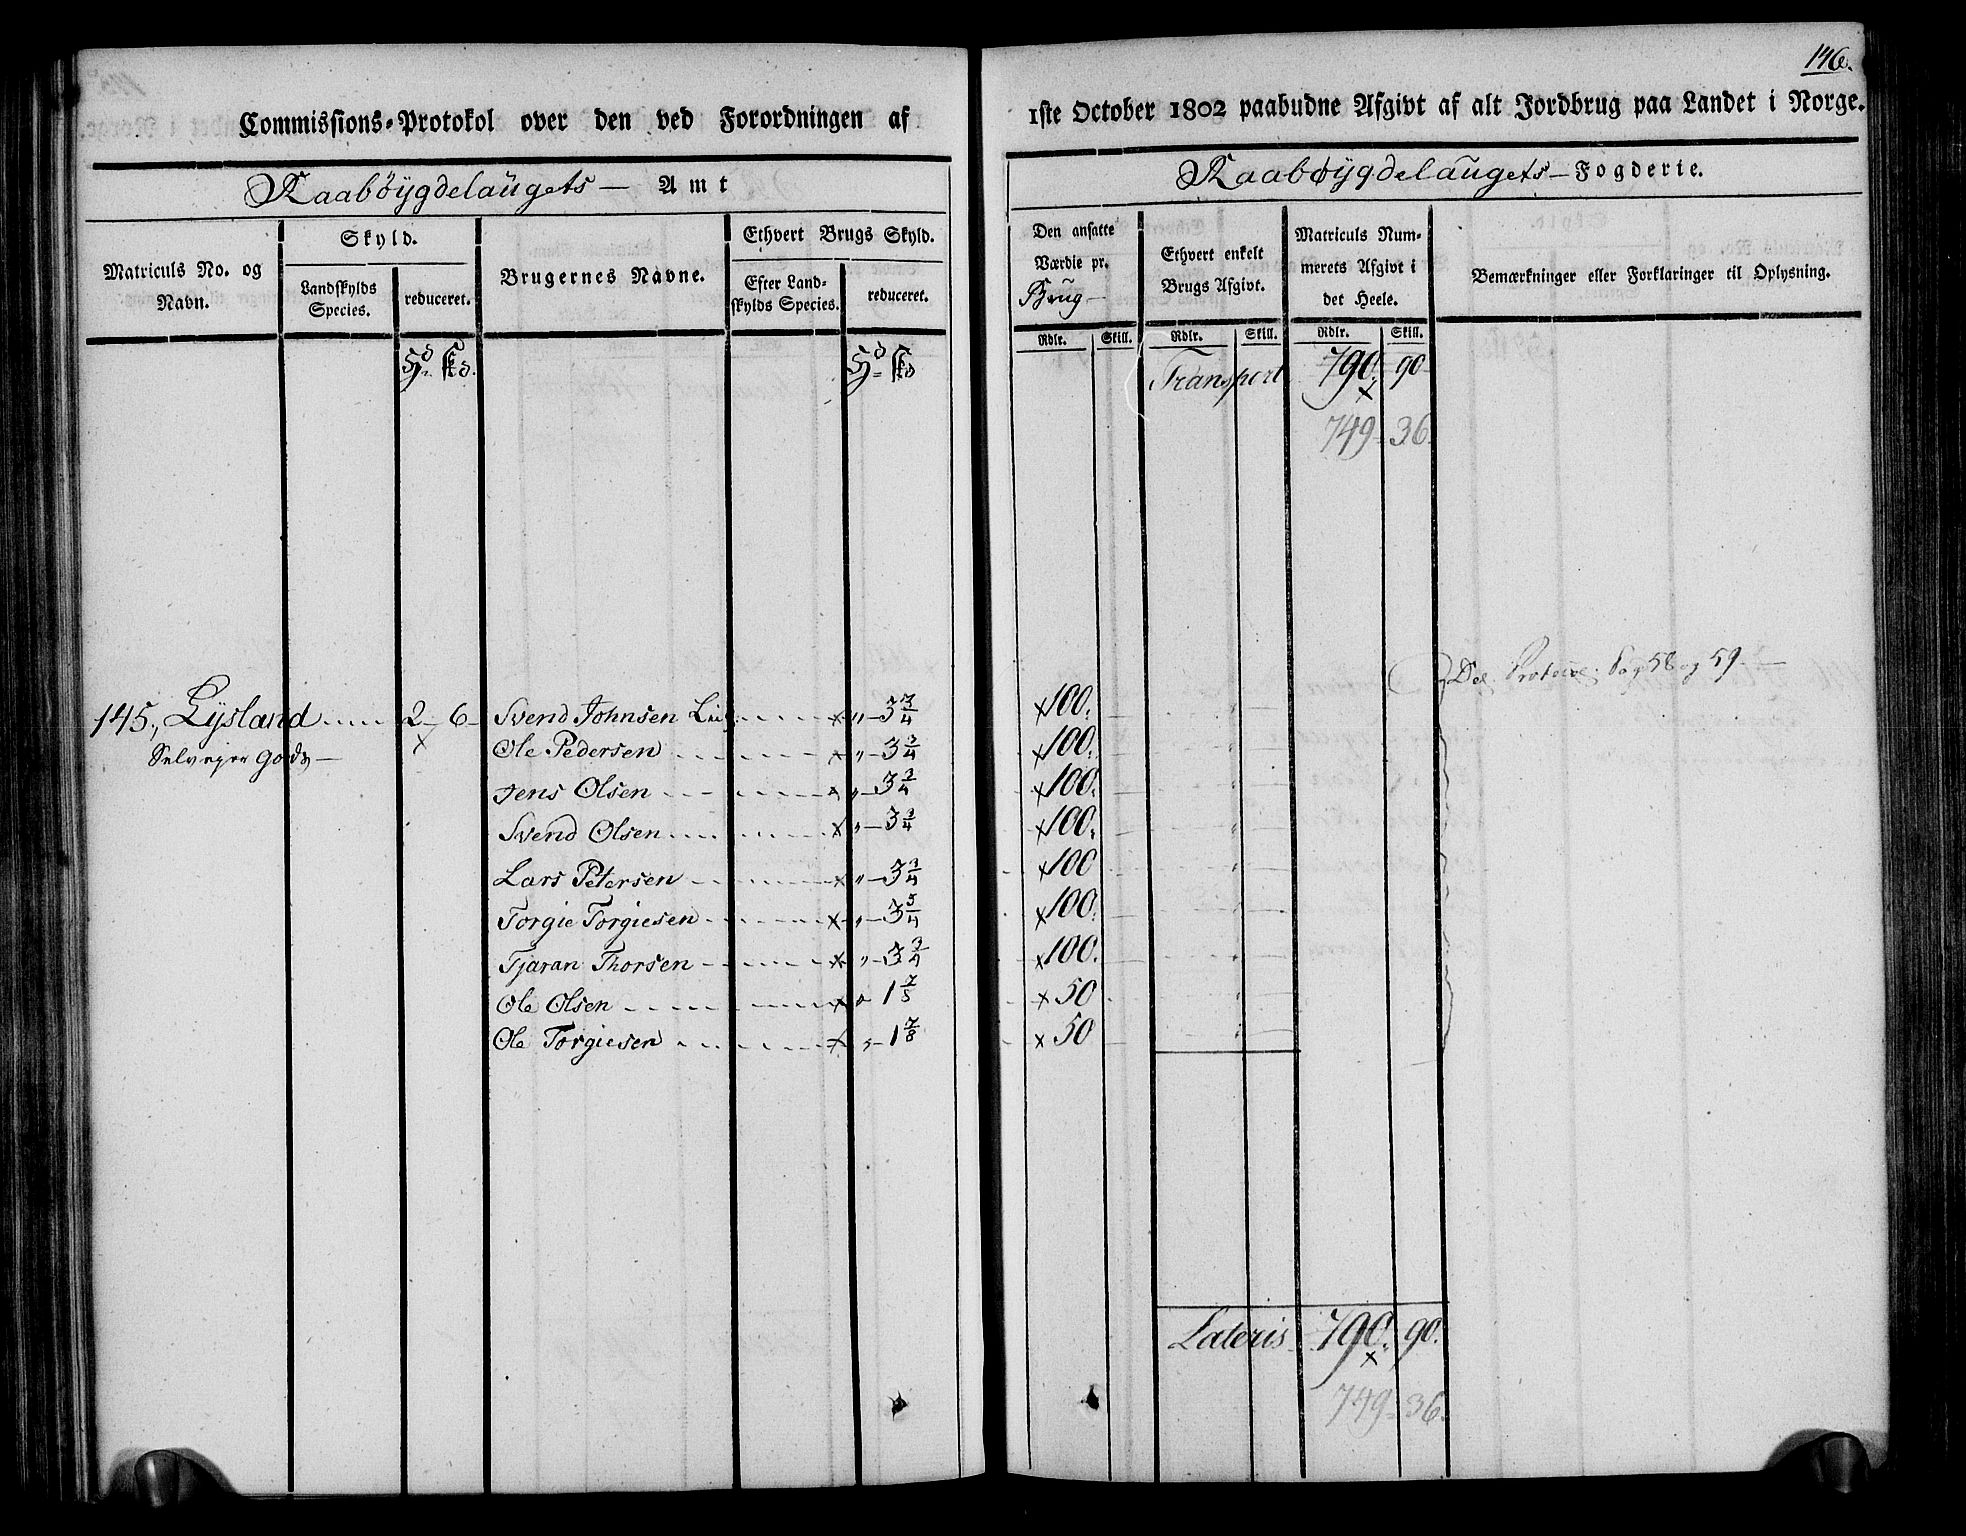 146.
Commissions-Protokol over den ved Forordningen af 1ste October 1802 paabudne Afgivt af alt Jordbrug paa Landet i Norge.
Raabøygdelaugets — Amt
Raabøygdelaugets — Fogderie.
Matriculs No. og Navn.
Skyld.
Landskylds Species.
reduceret.
Brugernes Navne.
Ethvert Brugs Skyld.
Efter Landskylds Species.
reduceret.
Den ansatte Værdie pr. Brug
Ethvert enkelt Brugs Afgivt.
Matriculs Nummerets Afgivt i det Heele.
Bemærkninger eller Forklaringer til Oplysning.
Rdlr. Skill. Rdlr. Skill. Rdlr. Skill.
Transport 790. 90
749 - 36.
Protocol Pag 58 og 59 —
145, Lysland 2 - 6 Svend Johnsen „ - 3 3/4 × 100.
Selveyer Gods — Ole Pedersen × „ - 3 3/4 × 100.
Jens Olsen × „ - 3 3/4 × 100.
Svend Olsen × „ - 3 3/4 × 100.
Lars Petersen × „ - 3 3/4 × 100
Torgie Torgiesen × „ - 3 3/4 × 100.
Tjaran Thorsen × „ - 3 3/4 × 100.
Ole Olsen × „ 1 × 50
Ole Torgiesen × „ - 1 7/8 × 50
Lateris 790. 90.
749 - 36.